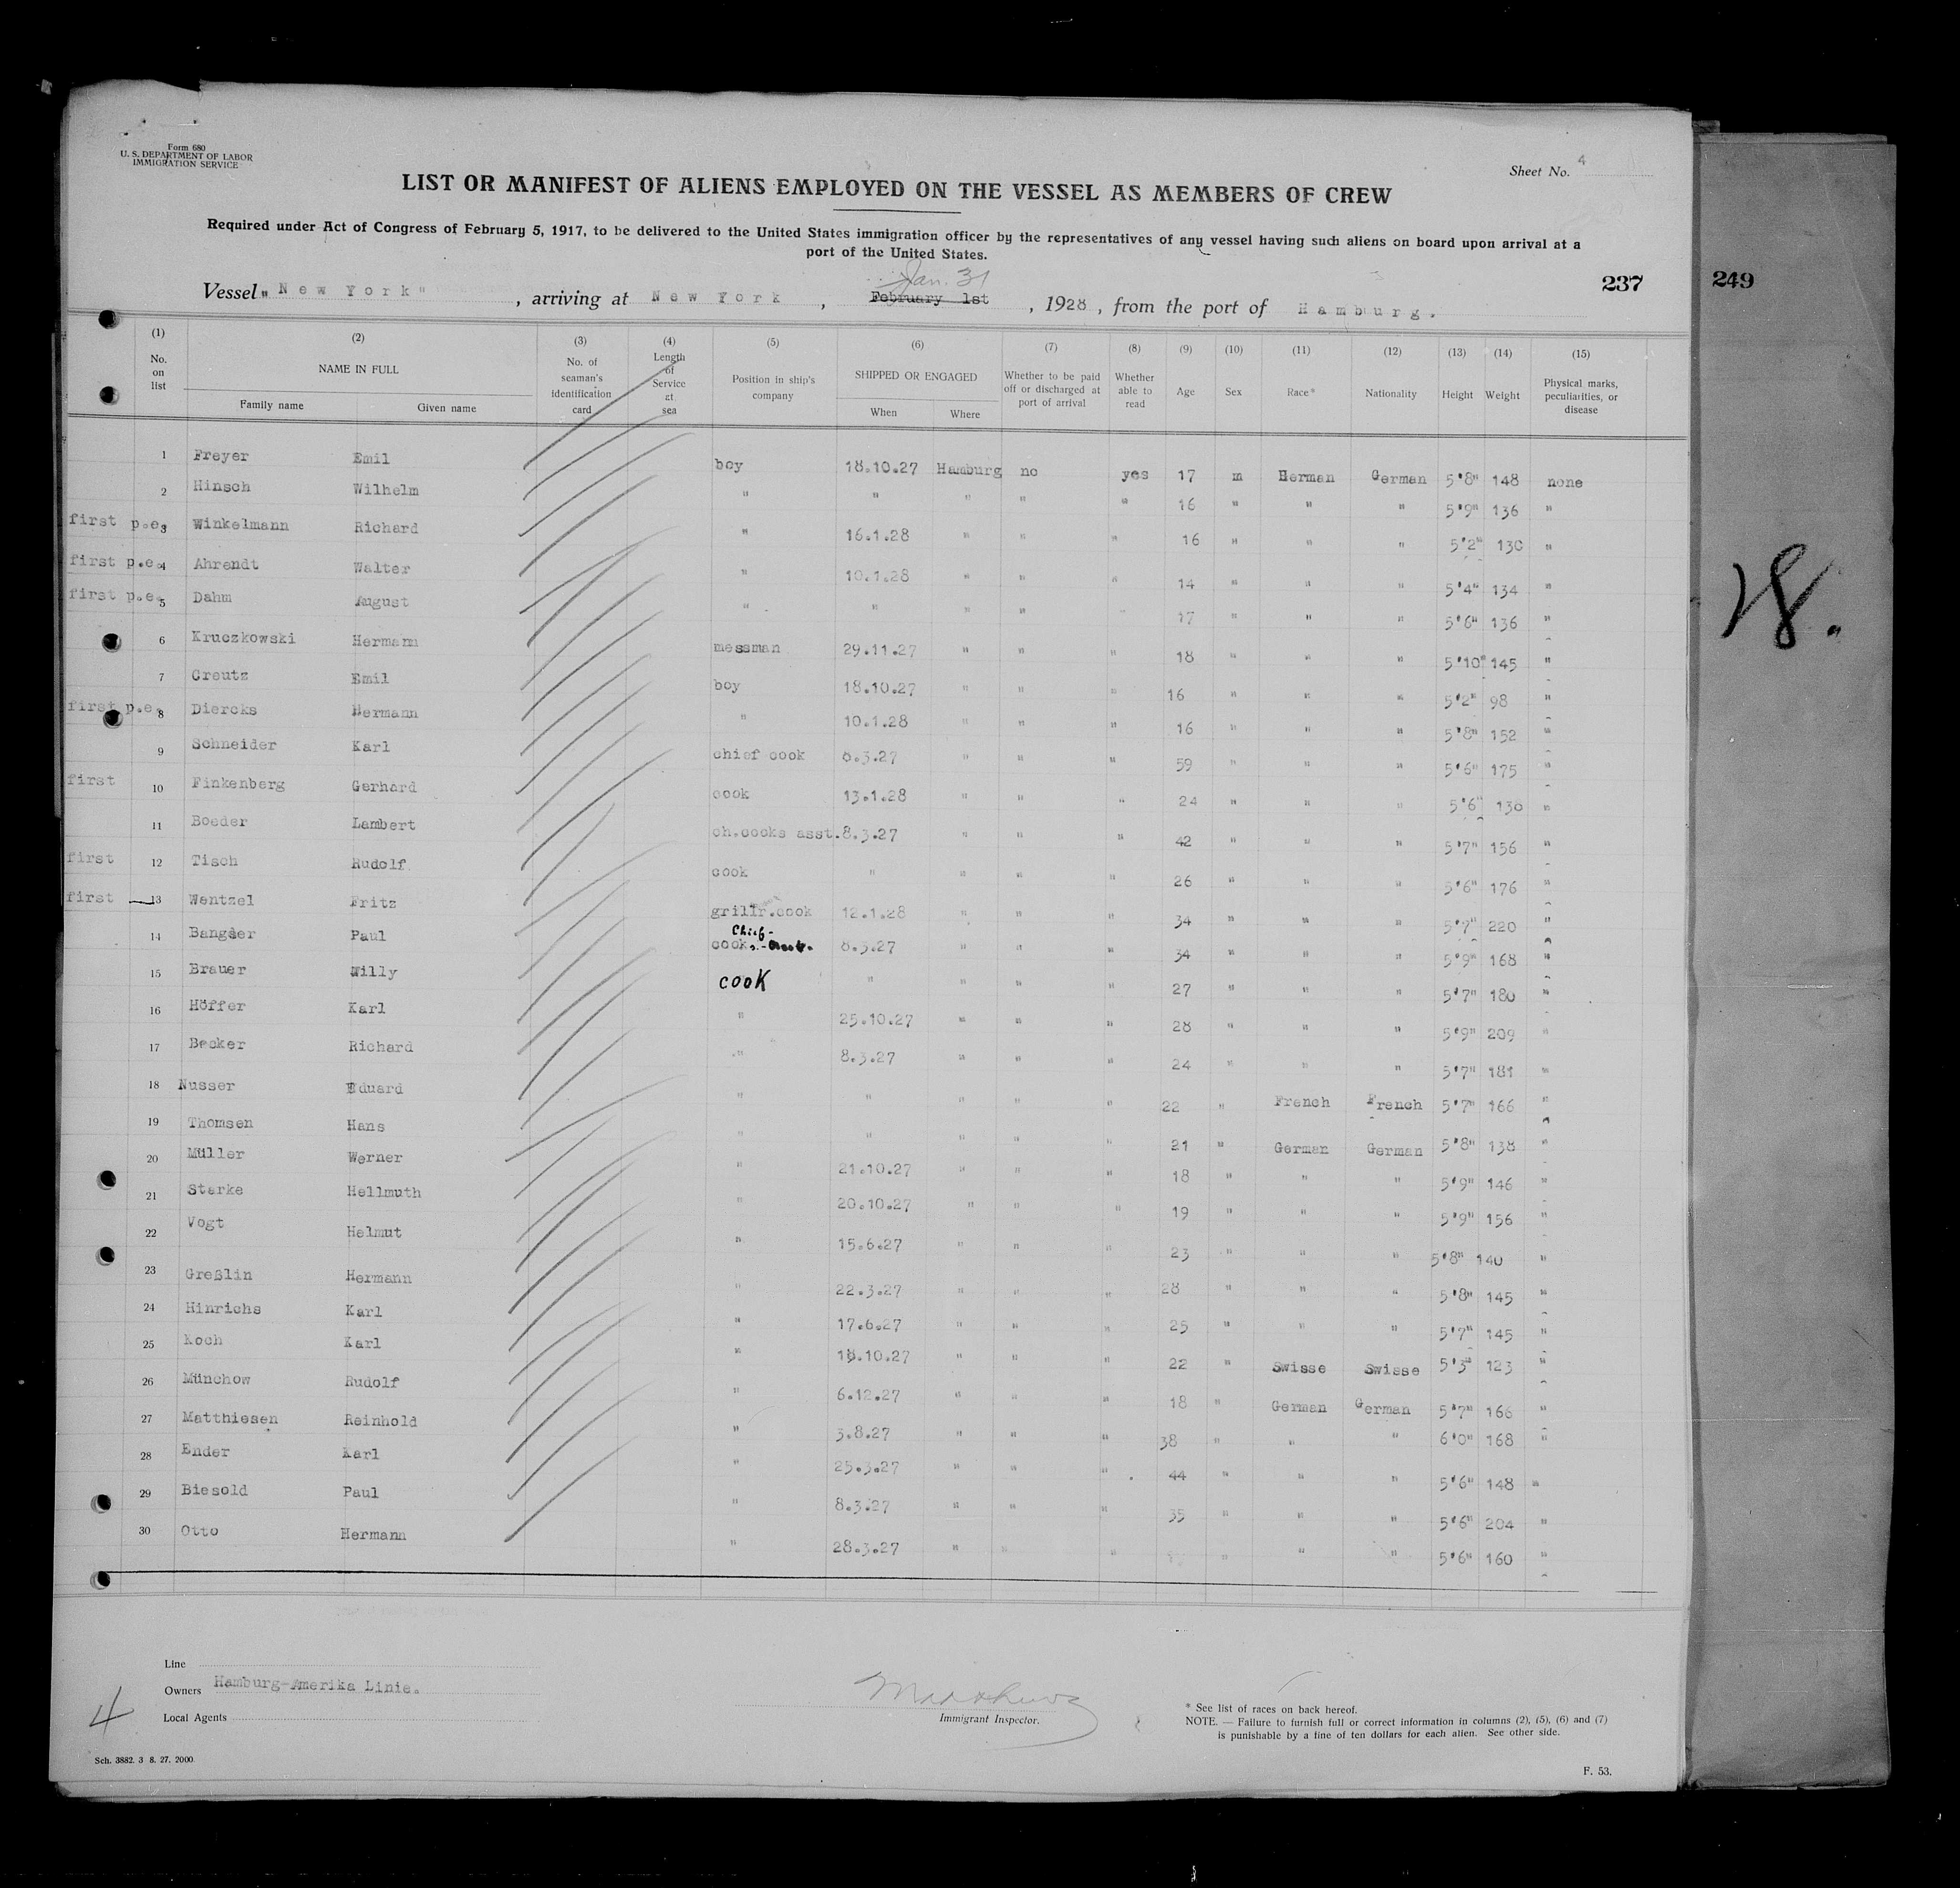 Form 680
U. S. DEPARTMENT OF LABOR
IMMIGRATION SERVICE
Sheet No. 4
LIST OR MANIFEST OF ALIENS EMPLOYED ON THE VESSEL AS MEMBERS OF CREW
Required under Act of Congress of February 5, 1917, to be delivered to the United States immigration officer by the representatives of any vessel having such aliens on board upon arrival at a
port of the United States.
Jan. 31
Vessel "New York" , arriving at New York , February 1st , 1928 , from the port of Hamburg.
237
249
(1) (2) (3) (4) (5) (6) (7) (8) (9) (10) (11) (12) (13) (14) (15)
No. on list NAME IN FULL No. of seaman's identification card Length of Service at sea Position in ship's company SHIPPED OR ENGAGED Whether to be paid off or discharged at port of arrival Whether able to read Age Sex Race* Nationality Height Weight Physical marks, peculiarities, or disease
Family name Given name When Where
1 Freyer Emil boy 18.10.27 Hamburg no yes 17 m Herman German 5'8" 148 none
2 Hinsch Wilhelm " " " " " 16 " " " 5'9" 136 "
first p.e. 3 Winkelmann Richard " 16.1.28 " " " 16 " " " 5'2" 130 "
first p.e. 4 Ahrendt Walter " 10.1.28 " " " 14 " " " 5'4" 134 "
first p.e. 5 Dahm August " " " " " 17 " " " 5'6" 136 "
6 Kruczkowski Hermann messman 29.11.27 " " " 18 " " " 5'10" 145 "
7 Creutz Emil boy 18.10.27 " " " 16 " " " 5'2" 98 "
first p.e. 8 Diercks Hermann " 10.1.28 " " " 16 " " " 5'8" 152 "
9 Schneider Karl chief cook 8.3.27 " " " 59 " " " 5'6" 175 "
first 10 Finkenberg Gerhard cook 13.1.28 " " " 24 " " " 5'6" 130 "
11 Boeder Lambert ch.cooks asst. 8.3.27 " " " 42 " " " 5'7" 156 "
first 12 Tisch Rudolf cook " " " " 26 " " " 5'6" 176 "
first 13 Wentzel Fritz grillr.cook 12.1.28 " " " 34 " " " 5'7" 220 "
14 Bangser Paul Chief- cook 8.3.27 " " " 34 " " " 5'9" 168 "
15 Brauer Willy cook " " " " 27 " " " 5'7" 180 "
16 Höffer Karl " 25.10.27 " " " 28 " " " 5'9" 209 "
17 Becker Richard " 8.3.27 " " " 24 " " " 5'7" 181 "
18 Nusser Eduard " " " " " 22 " French French 5'7" 166 "
19 Thomsen Hans " " " " " 21 " German German 5'8" 138 "
20 Müller Werner " 21.10.27 " " " 18 " " " 5'9" 146 "
21 Starke Hellmuth " 20.10.27 " " " 19 " " " 5'9" 156 "
22 Vogt Helmut " 15.6.27 " " " 23 " " " 5'8" 140 "
23 Greßlin Hermann " 22.3.27 " " " 28 " " " 5'8" 145 "
24 Hinrichs Karl " 17.6.27 " " " 25 " " " 5'7" 145 "
25 Koch Karl " 18.10.27 " " " 22 " Swisse Swisse 5'3" 123 "
26 Münchow Rudolf " 6.12.27 " " " 18 " German German 5'7" 166 "
27 Matthiesen Reinhold " 3.8.27 " " " 38 " " " 6'0" 168 "
28 Ender Karl " 25.3.27 " " " 44 " " " 5'6" 148 "
29 Biesold Paul " 8.3.27 " " " 35 " " " 5'6" 204 "
30 Otto Hermann " 28.3.27 " " " " " " 5'6" 160 "
18.
Line
Owners Hamburg-Amerika Linie.
Local Agents
4
Matthews
Immigrant Inspector.
* See list of races on back hereof.
NOTE. — Failure to furnish full or correct information in columns (2), (5), (6) and (7)
is punishable by a fine of ten dollars for each alien. See other side.
Sch. 3882. 3 8. 27. 2000
F. 53.